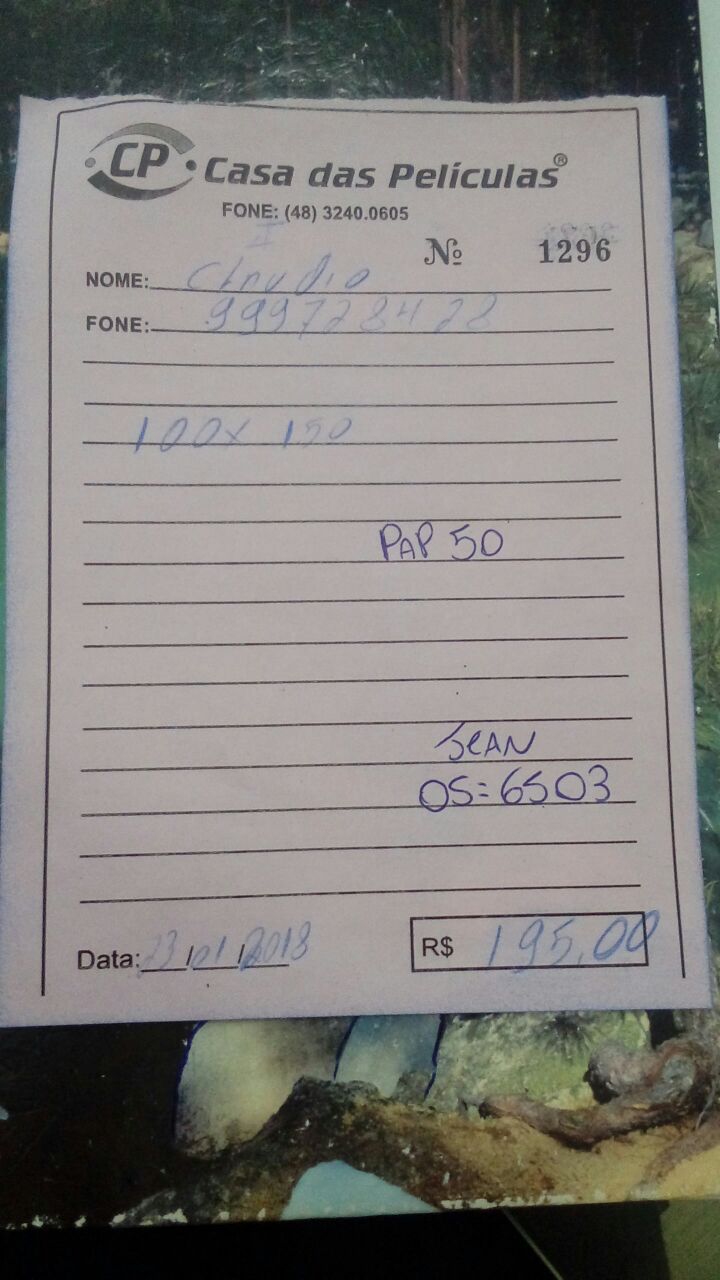 CP Casa das Películas®
FONE: (48) 3240.0605
Nº 1296
NOME: Claudio
FONE: 999728428
100x 150
PAP 50
JEAN
OS=6503
Data: 23/01/2018 R$ 195,00